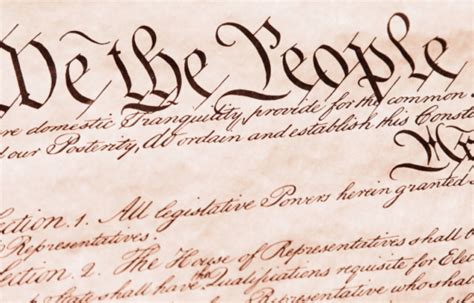 We the People
re domestic Tranquility, provide for the common
d our Posterity, do ordain and establish this Const
ection. 1. All legislative Powers herein granted
Representatives.
ection. 2. The House of Representatives shall b
the
State shall have Qualifications requisite for Elec